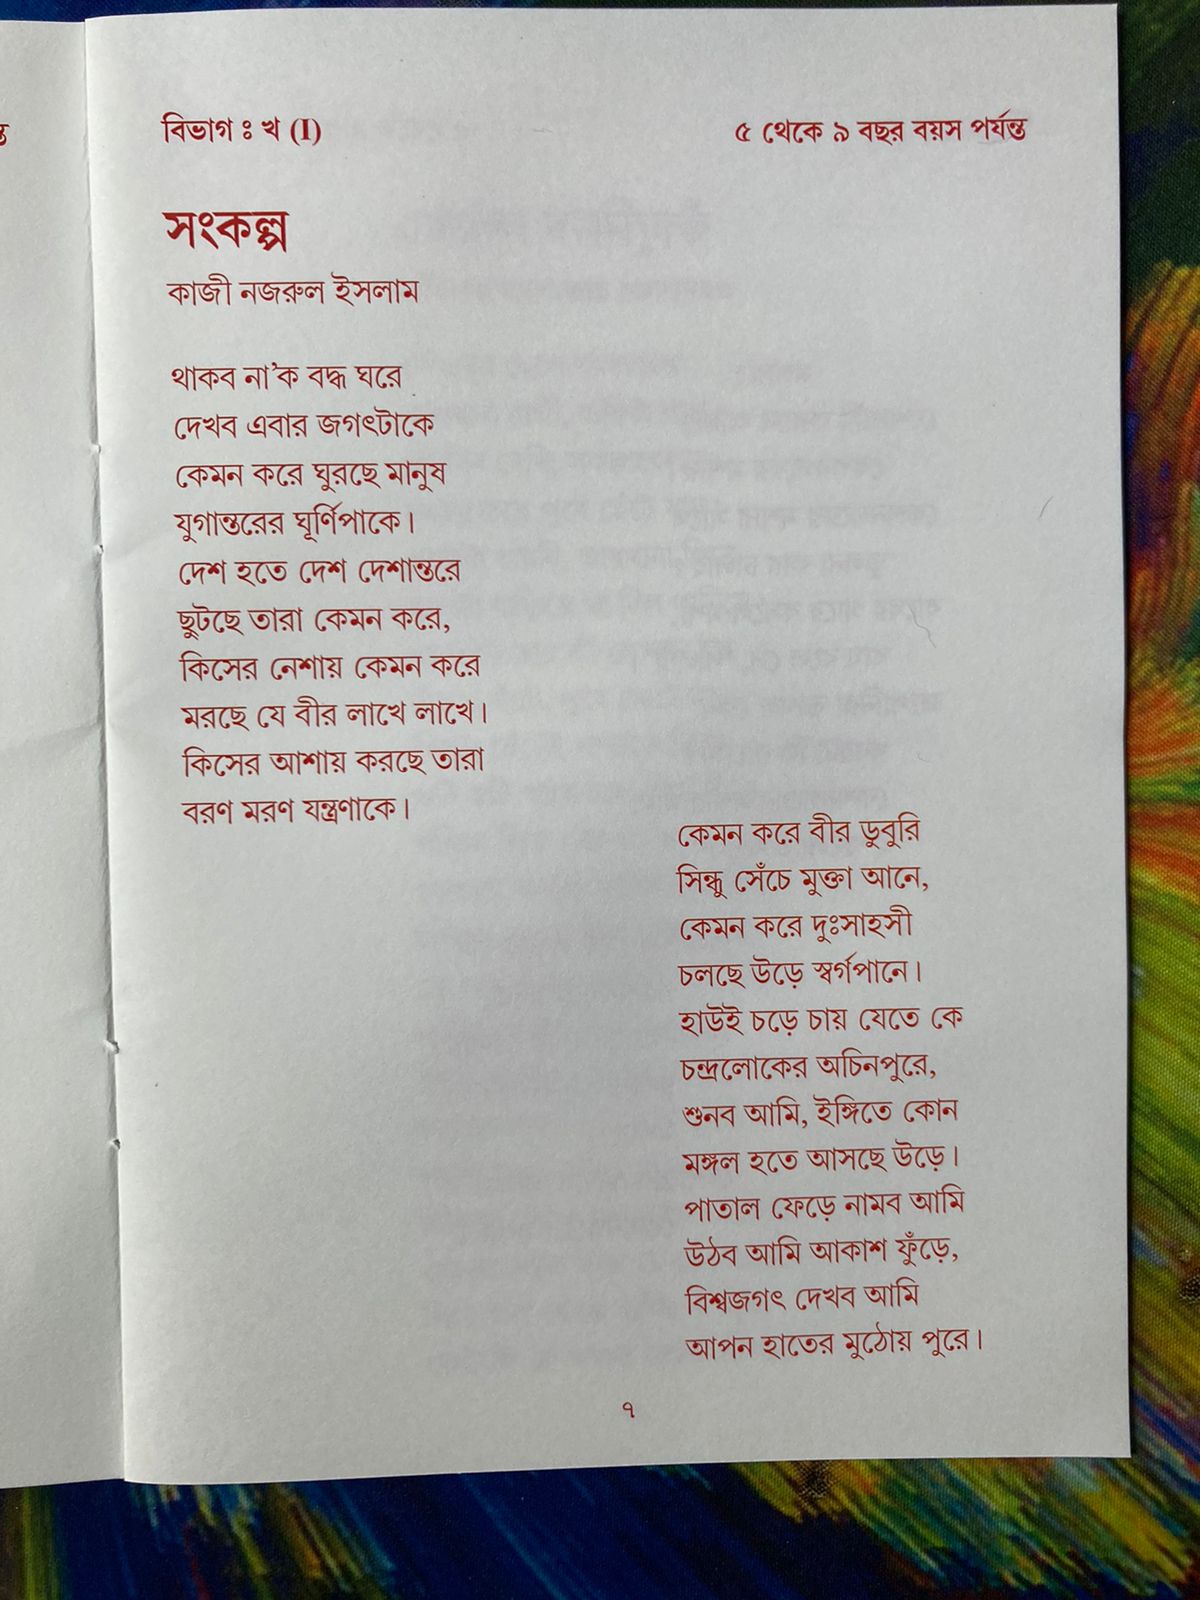 বিভাগ ঃ খ (I)
৫ থেকে ৯ বছর বয়স পর্যন্ত
সংকল্প
কাজী নজরুল ইসলাম
থাকব না'ক বদ্ধ ঘরে
দেখব এবার জগৎটাকে
কেমন করে ঘুরছে মানুষ
যুগান্তরের ঘূর্ণিপাকে।
দেশ হতে দেশ দেশান্তরে
ছুটছে তারা কেমন করে,
কিসের নেশায় কেমন করে
মরছে যে বীর লাখে লাখে।
কিসের আশায় করছে তারা
বরণ মরণ যন্ত্রণাকে।
কেমন করে বীর ডুবুরি
সিন্ধু সেঁচে মুক্তা আনে,
কেমন করে দুঃসাহসী
চলছে উড়ে স্বর্গপানে।
হাউই চড়ে চায় যেতে কে
চন্দ্রলোকের অচিনপুরে,
শুনব আমি, ইঙ্গিতে কোন
মঙ্গল হতে আসছে উড়ে।
পাতাল ফেড়ে নামব আমি
উঠব আমি আকাশ ফুঁড়ে,
বিশ্বজগৎ দেখব আমি
আপন হাতের মুঠোয় পুরে।
৭